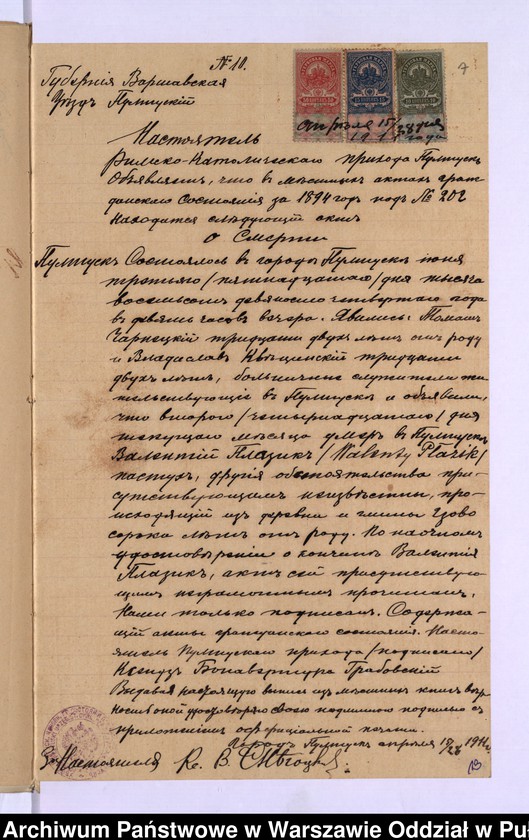 № 10.
4
Губернія Варшавская
Уѣздъ Пултускій
апрѣля 15/28 дня
191 года
Настоятель
Римско-Католическаго прихода Пултускъ
Объявляетъ, что въ мѣстныхъ актахъ граж-
данскаго Состоянія за 1894 годъ подъ № 202
находится слѣдующій актъ
о Смерти
Пултускъ Состоялось въ городѣ Пултускѣ іюня
третьяго /пятнадцатаго/ дня тысяча
восемьсотъ девяносто четвертаго года
въ девять часовъ вечера. Явились: Томашъ
Чарнецкій тридцати двухъ лѣтъ отъ роду
и Владиславъ тридцати
двухъ лѣтъ, больничные служители жи-
тельствующіе въ Пултускѣ и объявили,
что второго /четырнадцатаго/ дня
текущаго мѣсяца умеръ въ Пултускѣ
Валентій Плазикъ /Walenty Plazik/
пастухъ, другія обстоятельства при-
сутствующимъ неизвѣстны, про-
исходящій изъ деревни и гмины Гзово
сорока лѣтъ отъ роду. По наочномъ
удостовѣреніи о кончинѣ Валентія
Плазикъ, актъ сей присутствую-
щимъ неграмотнымъ прочитанъ,
Нами только подписанъ. Содержа-
щій акты гражданскаго состоянія. Насто-
ятель Пултускаго прихода /подписано/
Ксендзъ Бонавентура Грабовскій
Выдавая настоящую выпись изъ мѣстныхъ книгъ
удостовѣряю своею подписью съ
приложеніемъ оффиціальной печати.
Городъ Пултускъ апрѣля 15/28 191 г.
За Настоятеля Кс. В.
13
Archiwum Państwowe w Warszawie Oddział w Pu